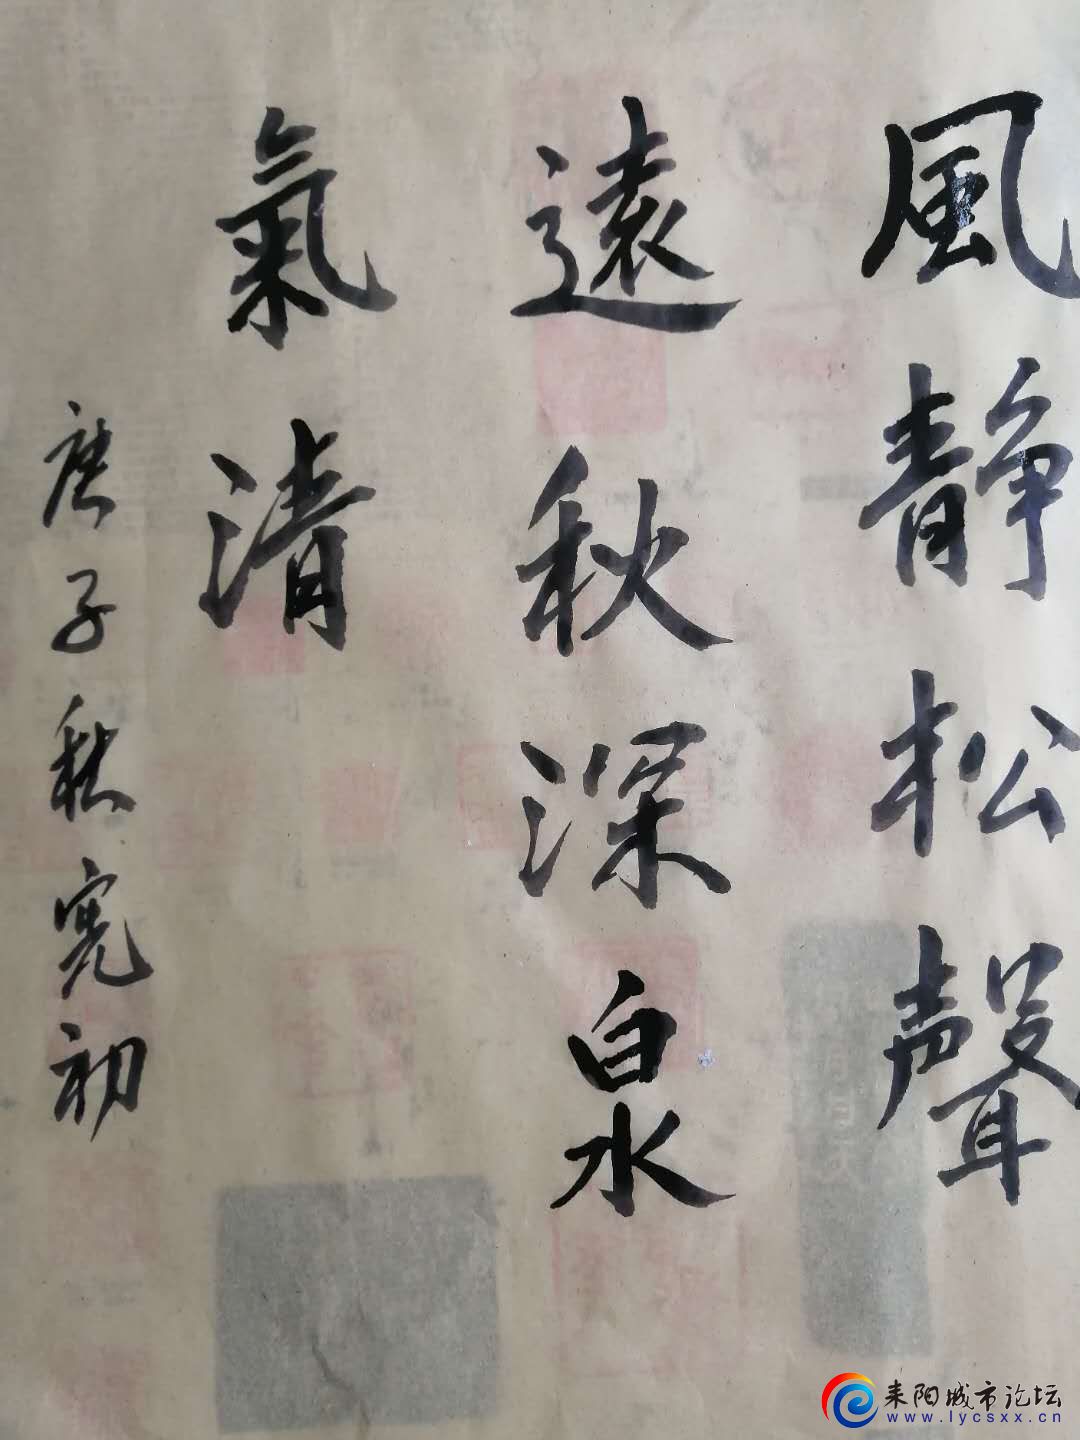 風静松聲
遠秋深泉
氣清
庚子秋寬初
耒阳城市论坛
www.lycsxx.cn